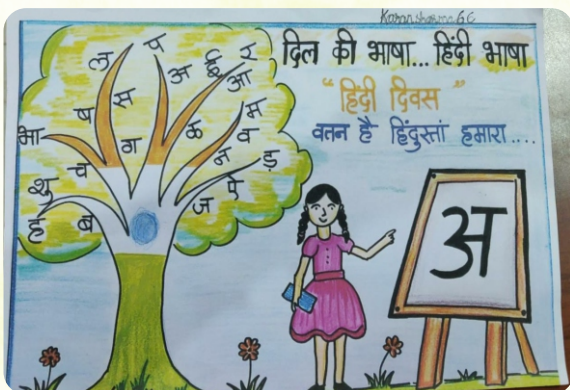 Karan sharma 6C
दिल की भाषा... हिंदी भाषा
"हिंदी दिवस"
वतन है हिंदुस्तां हमारा....
अ
ल प
अ ई र
आ
ष स
भा
ग क म
च न व
शु ड़
ह ब ज पे